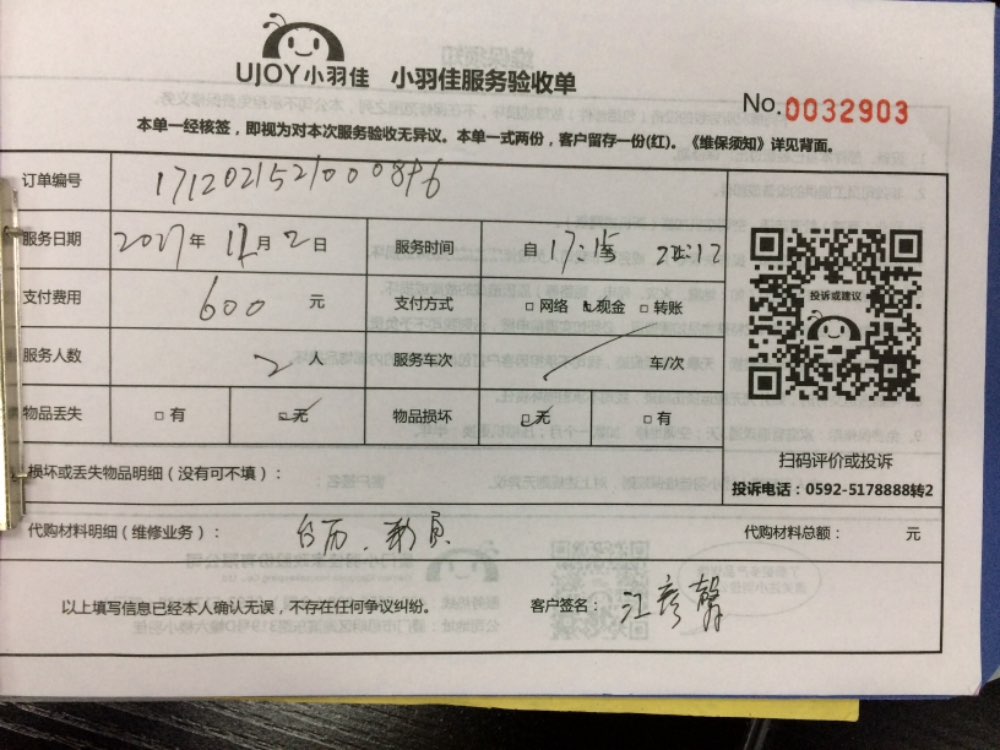 UJOY小羽佳 小羽佳服务验收单
No.0032903
本单一经核签，即视为对本次服务验收无异议。本单一式两份，客户留存一份(红)。《维保须知》详见背面。
订单编号 17120215210008
服务日期 年 月 2 日 服务时间 自 17:15
支付费用 600 元 支付方式 □ 网络 □ 现金 □ 转账
投诉或建议
服务人数 2 人 服务车次 车/次
物品丢失 □ 有 □ 无 物品损坏 □ 无 □ 有
损坏或丢失物品明细（没有可不填）：
扫码评价或投诉
投诉电话：0592-5178888转2
代购材料明细（维修业务）： 代购材料总额： 元
以上填写信息已经本人确认无误，不存在任何争议纠纷。 客户签名： 江彦馨